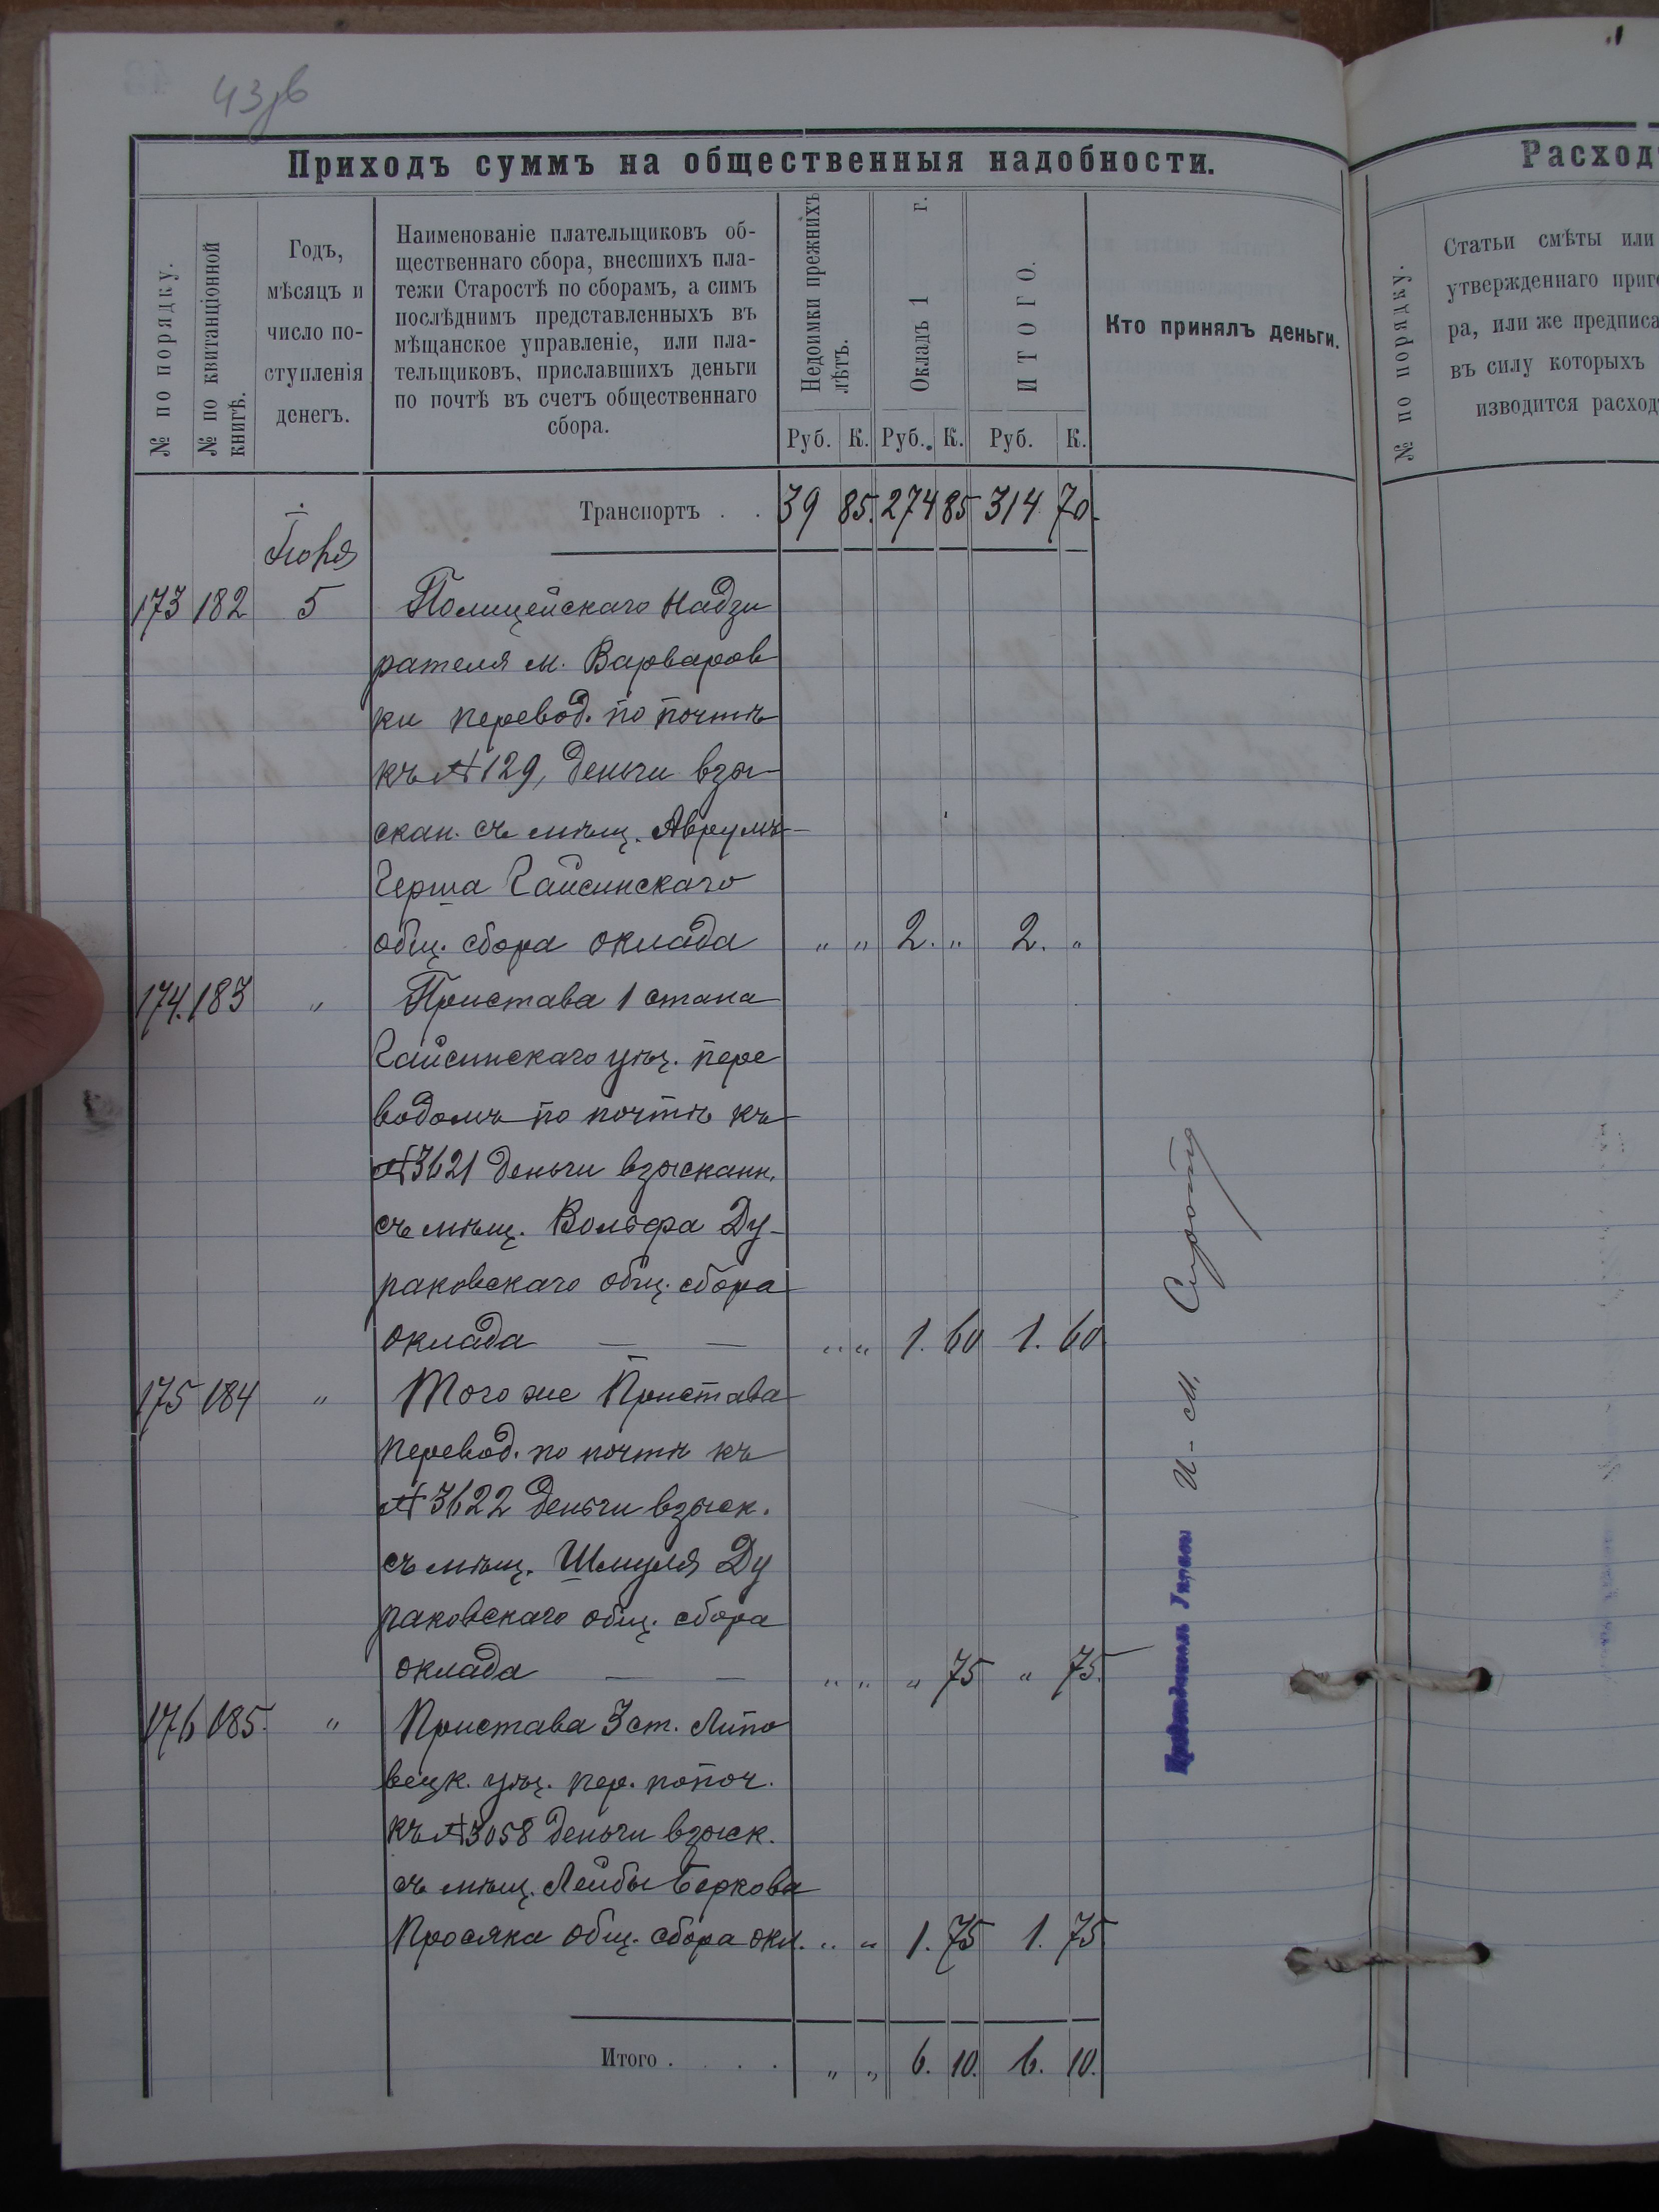 43зв
Приходъ суммъ на общественныя надобности.
№ по порядку.
№ по квитанціонной
книгѣ.
Годъ,
мѣсяцъ и
число по-
ступленія
денегъ.
Наименованіе плательщиковъ об-
щественнаго сбора, внесшихъ пла-
тежи Старостѣ по сборамъ, а симъ
послѣднимъ представленныхъ въ
мѣщанское управленіе, или пла-
тельщиковъ, приславшихъ деньги
по почтѣ въ счетъ общественнаго
сбора.
Недоимки прежнихъ
лѣтъ.
Окладъ 1 г.
ИТОГО.
Руб. К. Руб. К. Руб. К.
Кто принялъ деньги.
Транспортъ . . 39 85. 274 85 314 70.
173 182 5 Полицейскаго Надзи
рателя м. Варваров
ки перевод. по почтѣ
къ № 129, деньги взы-
скан. съ мѣщ. Аврумъ-
Герша Гайсинскаго
общ. сбора оклада „ „ 2. „ 2. „
174. 183 „ Пристава 1 стана
Гайсинскаго уѣз. пере
водомъ по почтѣ къ
№ 3621 деньги взысканн.
съ мѣщ. Вольфа Ду-
раковскаго общ. сбора
оклада — — „ „ 1. 60 1. 60
175 184 „ Того же Пристава
перевод. по почтѣ къ
№ 3622 деньги взыск.
съ мѣщ. Шмуля Ду
раковскаго общ. сбора
оклада — — „ „ „ 75 „ 75.
176 185. „ Пристава 3 ст. Липо
вецк. уѣз. пер. по поч.
къ № 3058 деньги взыск.
съ мѣщ. Лейбы Беркова
Просяка общ. сбора окл. „ „ 1. 75 1. 75
Итого . . . . „ „ 6. 10. 6. 10.
И - М.
Расход
№ по порядку.
Статьи смѣты или
утвержденнаго приг
ра, или же предписа
въ силу которыхъ
изводится расход